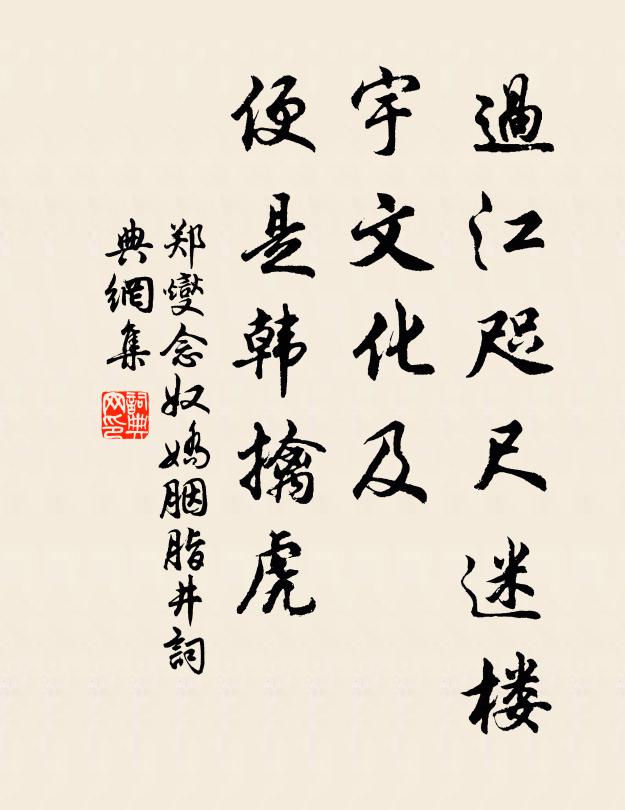 過江咫尺迷楼
宇文化及
便是韩擒虎
郑燮念奴嬌胭脂井詞
典網集
詞典网印